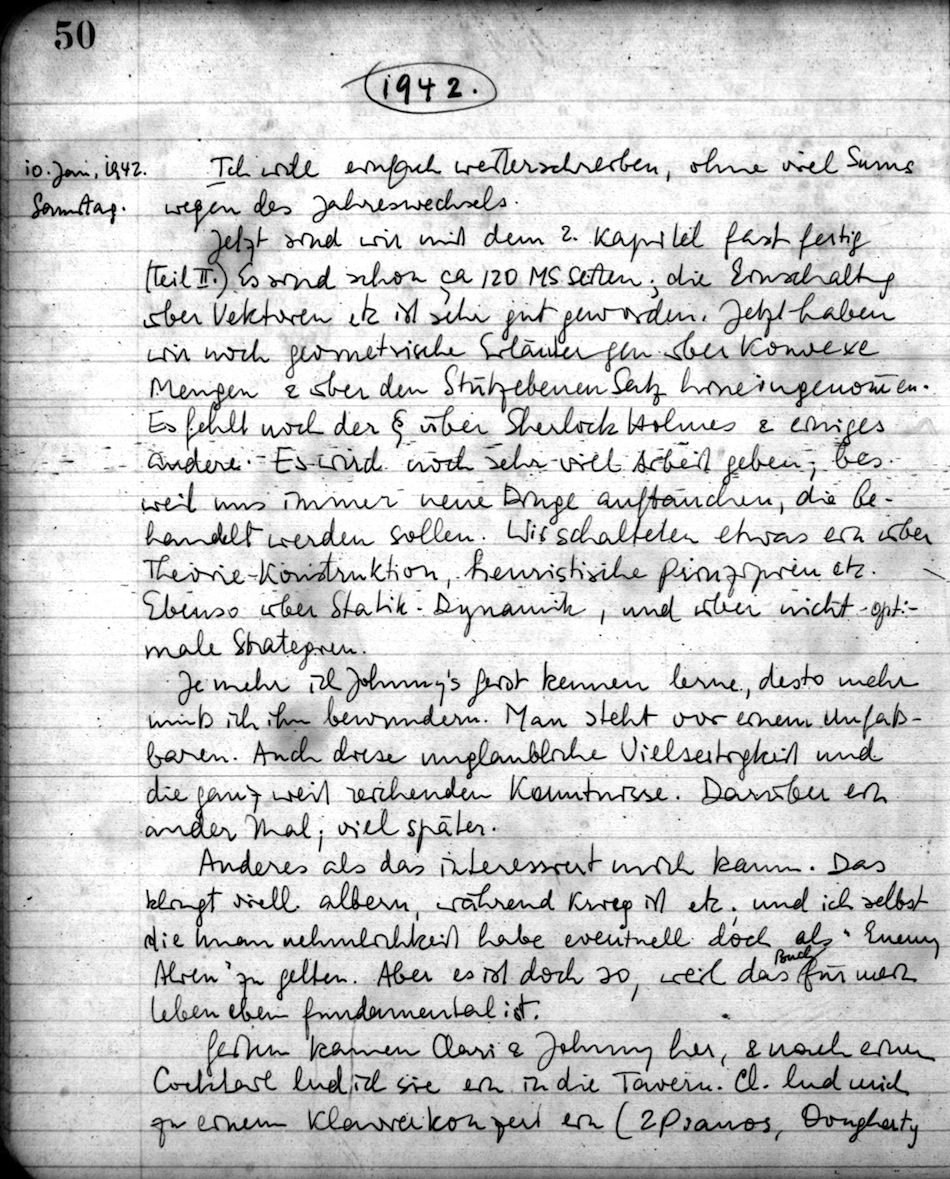 50
1942.
10. Jan, 1942. Ich will einfach weiterschreiben, ohne viel Sums
Samstag. wegen des Jahreswechsels.
Jetzt sind wir mit dem 2. Kapitel fast fertig
(Teil II.) Es sind schon ca 120 MS Seiten; die Einschaltg
über Vektoren etc ist sehr gut geworden. Jetzt haben
wir noch geometrische Erläutergen über Konvexe
Mengen & über den Stützebenen Satz hineingenom̄en.
Es fehlt noch der § über Sherlock Holmes & einiges
andere. Es wird noch sehr viel Arbeit geben, bes.
weil uns immer neue Dinge auftauchen, die be-
handelt werden sollen. Wir schalteten etwas ein über
Theorie-Konstruktion, heuristische Prinzipien etc.
Ebenso über Statik-Dynamik, und über nicht-opti-
male Strategien.
Je mehr ich Johnny's Geist kennen lerne, desto mehr
muß ich ihn bewundern. Man steht vor einem Unfaß-
baren. Auch diese unglaubliche Vielseitigkeit und
die ganz weit reichenden Kenntnisse. Darüber ein
ander Mal; viel später.
Anderes als das interessiert mich kaum. Das
klingt viell albern, während Krieg ist etc. und ich selbst
die Unannehmlichkeit habe eventuell doch als "Enemy
Alien" zu gelten. Aber es ist doch so, weil das Buch für mein
Leben eben fundamental ist.
Gestern kamen Clari & Johnny her, & nach einem
Cocktail lud ich sie ein in die Tavern. Cl. lud mich
zu einem Klavierkonzert ein (2 Pianos, Dougherty